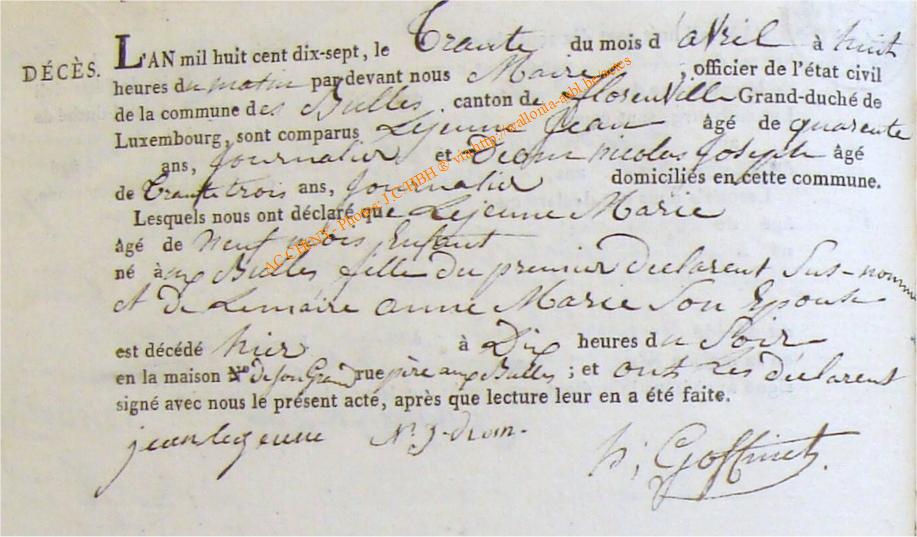 DÉCÈS.
L'AN mil huit cent dix-sept, le Trante du mois d avril à huit
heures du matin par devant nous Maire, officier de l'état civil
de la commune des Bulles, canton de florenville Grand-duché de
Luxembourg, sont comparus Lejeune Jean âgé de quarente
ans, Journalier et Dion nicolas Joseph âgé
de Trante trois ans, Journalier domiciliés en cette commune.
Lesquels nous ont déclaré que Lejeune Marie
âgé de Neuf mois Enfant
né à aux Bulles fille du premier declarent sus-nommé
et de Lemaire anne Marie Son Epouse
est décédé hier à Dix heures du Soir
en la maison N.º de son Grand rue père aux Bulles ; et ont les declarent
signé avec nous le présent acte, après que lecture leur en a été faite.
jean lejeune N. J. dion.
h; Goffinet.
AC CHINY - Photos J.C. HBH @ via http://wallonia-asbl.be/actes